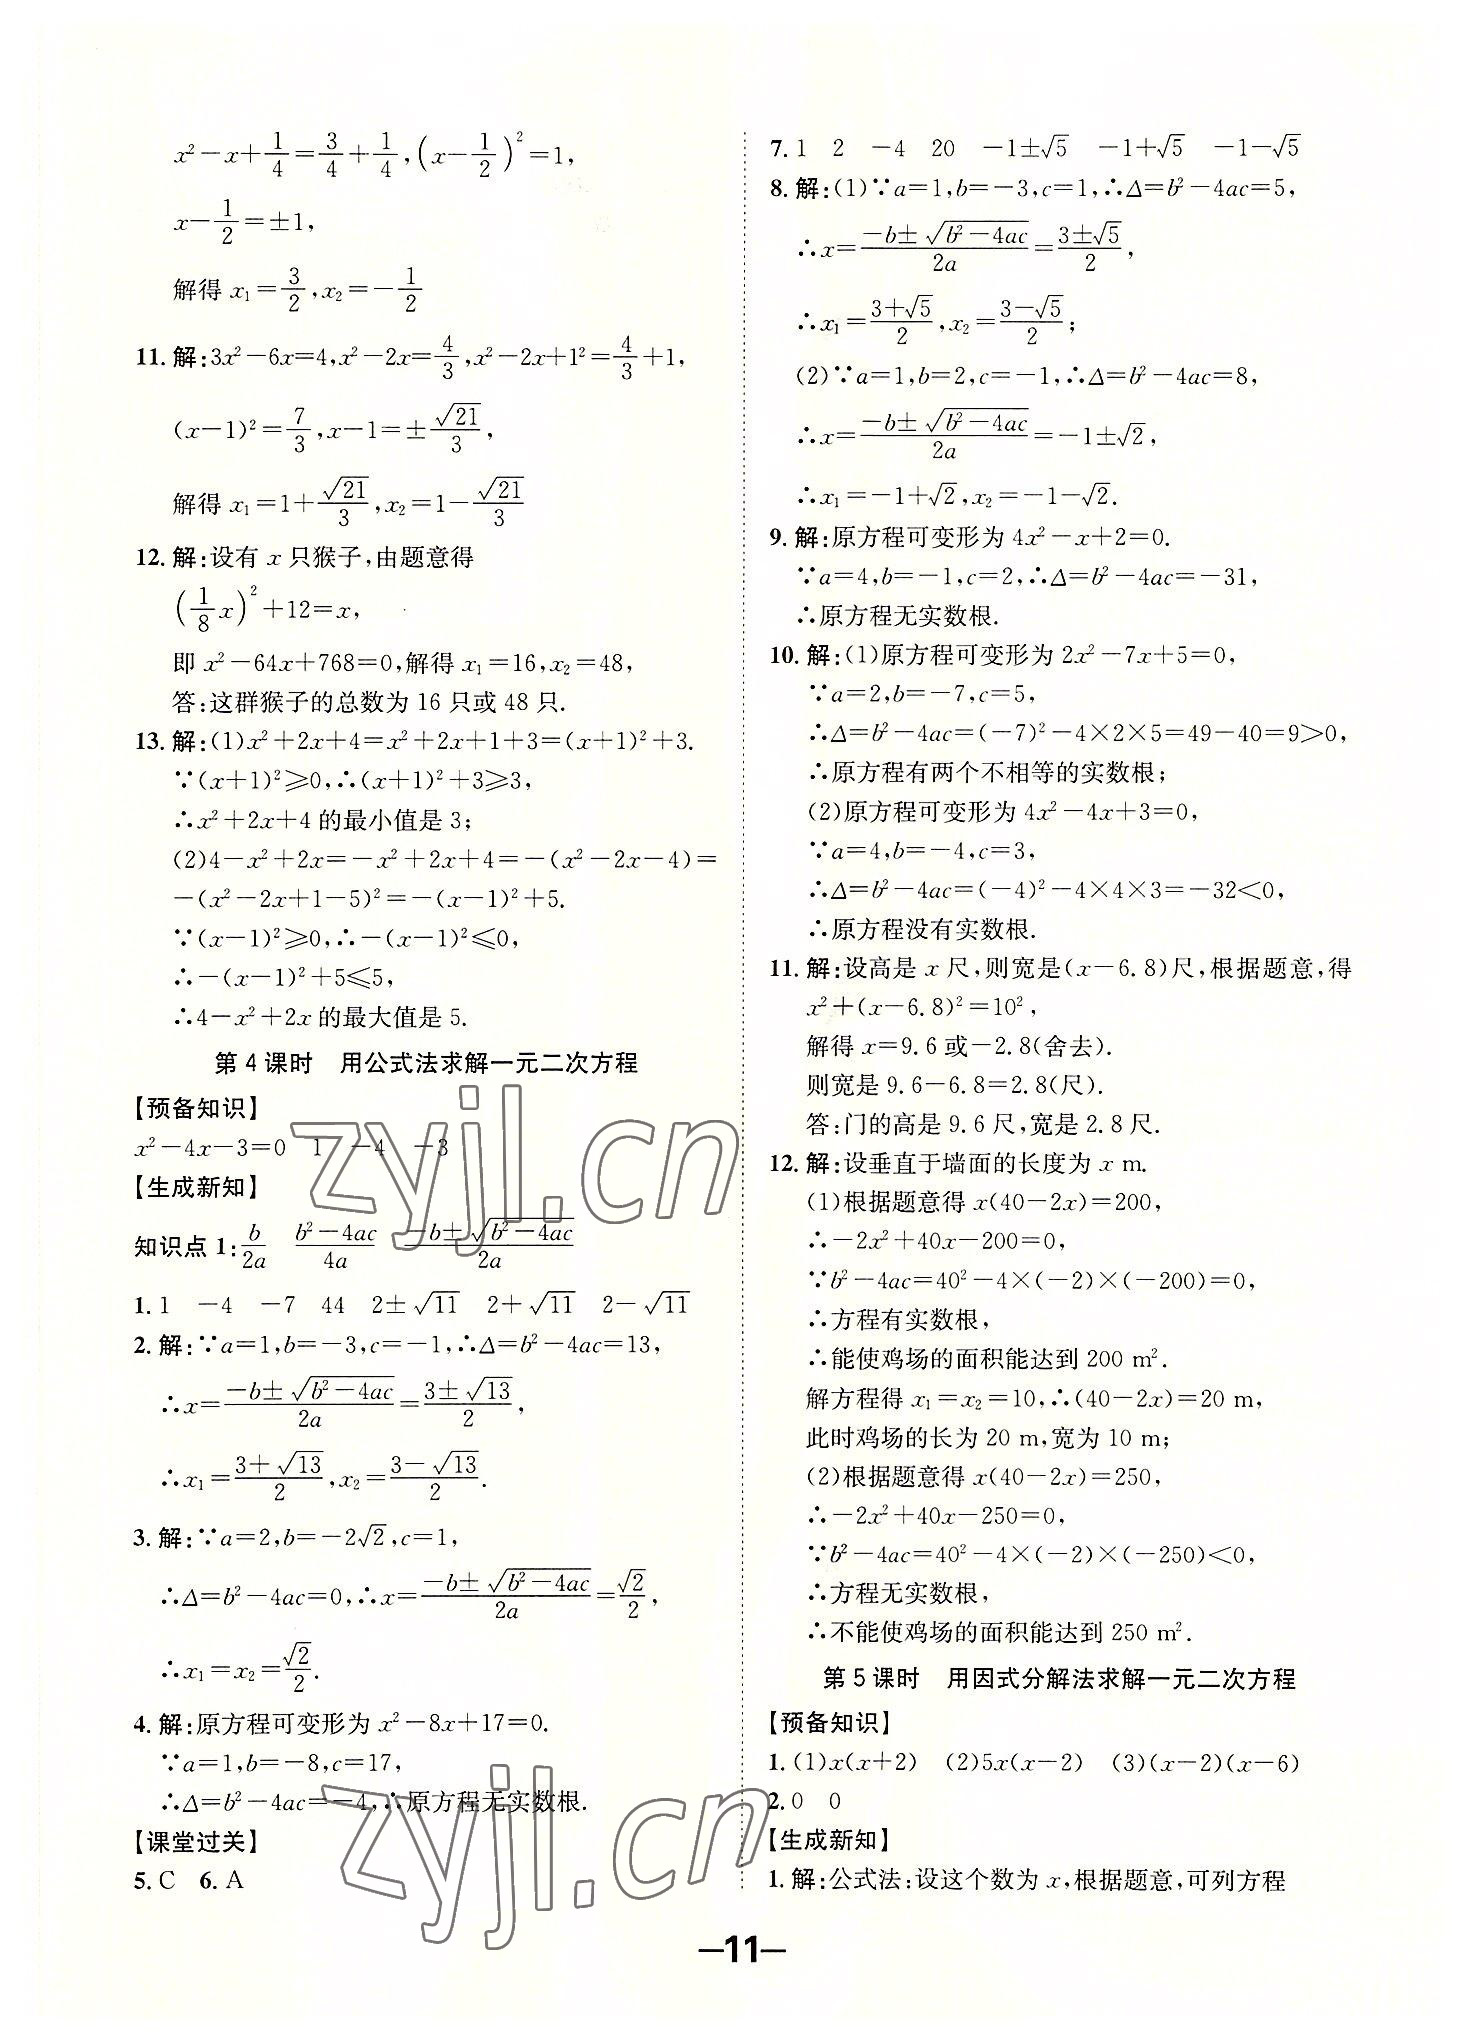 x²−x+1/4=3/4+1/4,(x−1/2)²=1,
x−1/2=±1,
解得 x₁=3/2,x₂=−1/2
11.解:3x²−6x=4,x²−2x=4/3,x²−2x+1²=4/3+1,
(x−1)²=7/3,x−1=±√21/3,
解得 x₁=1+√21/3,x₂=1−√21/3
12.解:设有 x 只猴子,由题意得
(1/8x)²+12=x,
即 x²−64x+768=0,解得 x₁=16,x₂=48,
答:这群猴子的总数为 16 只或 48 只.
13.解:(1)x²+2x+4=x²+2x+1+3=(x+1)²+3.
∵(x+1)²⩾0,∴(x+1)²+3⩾3,
∴x²+2x+4 的最小值是 3;
(2)4−x²+2x=−x²+2x+4=−(x²−2x−4)=
−(x²−2x+1−5)²=−(x−1)²+5.
∵(x−1)²⩾0,∴−(x−1)²⩽0,
∴−(x−1)²+5⩽5,
∴4−x²+2x 的最大值是 5.
第 4 课时 用公式法求解一元二次方程
【预备知识】
x²−4x−3=0 1 −4 −3
【生成新知】
知识点 1:b/2a (b²−4ac)/4a (−b±√(b²−4ac))/2a
1.1 −4 −7 44 2±√11 2+√11 2−√11
2.解:∵a=1,b=−3,c=−1,∴Δ=b²−4ac=13,
∴x=(−b±√(b²−4ac))/2a=(3±√13)/2,
∴x₁=(3+√13)/2,x₂=(3−√13)/2.
3.解:∵a=2,b=−2√2,c=1,
∴Δ=b²−4ac=0,∴x=(−b±√(b²−4ac))/2a=√2/2,
∴x₁=x₂=√2/2.
4.解:原方程可变形为 x²−8x+17=0.
∵a=1,b=−8,c=17,
∴Δ=b²−4ac=−4,∴原方程无实数根.
【课堂过关】
5.C 6.A
7.1 2 −4 20 −1±√5 −1+√5 −1−√5
8.解:(1)∵a=1,b=−3,c=1,∴Δ=b²−4ac=5,
∴x=(−b±√(b²−4ac))/2a=(3±√5)/2,
∴x₁=(3+√5)/2,x₂=(3−√5)/2;
(2)∵a=1,b=2,c=−1,∴Δ=b²−4ac=8,
∴x=(−b±√(b²−4ac))/2a=−1±√2,
∴x₁=−1+√2,x₂=−1−√2.
9.解:原方程可变形为 4x²−x+2=0.
∵a=4,b=−1,c=2,∴Δ=b²−4ac=−31,
∴原方程无实数根.
10.解:(1)原方程可变形为 2x²−7x+5=0,
∵a=2,b=−7,c=5,
∴Δ=b²−4ac=(−7)²−4×2×5=49−40=9>0,
∴原方程有两个不相等的实数根;
(2)原方程可变形为 4x²−4x+3=0,
∵a=4,b=−4,c=3,
∴Δ=b²−4ac=(−4)²−4×4×3=−32<0,
∴原方程没有实数根.
11.解:设高是 x 尺,则宽是(x−6.8)尺,根据题意,得
x²+(x−6.8)²=10²,
解得 x=9.6 或−2.8(舍去).
则宽是 9.6−6.8=2.8(尺).
答:门的高是 9.6 尺,宽是 2.8 尺.
12.解:设垂直于墙面的长度为 x m.
(1)根据题意得 x(40−2x)=200,
∴−2x²+40x−200=0,
∵b²−4ac=40²−4×(−2)×(−200)=0,
∴方程有实数根,
∴能使鸡场的面积能达到 200 m².
解方程得 x₁=x₂=10,∴(40−2x)=20 m,
此时鸡场的长为 20 m,宽为 10 m;
(2)根据题意得 x(40−2x)=250,
∴−2x²+40x−250=0,
∵b²−4ac=40²−4×(−2)×(−250)<0,
∴方程无实数根,
∴不能使鸡场的面积能达到 250 m².
第 5 课时 用因式分解法求解一元二次方程
【预备知识】
1.(1)x(x+2) (2)5x(x−2) (3)(x−2)(x−6)
2.0 0
【生成新知】
1.解:公式法:设这个数为 x,根据题意,可列方程
—11—
zyjl.cn
zyjl.cn